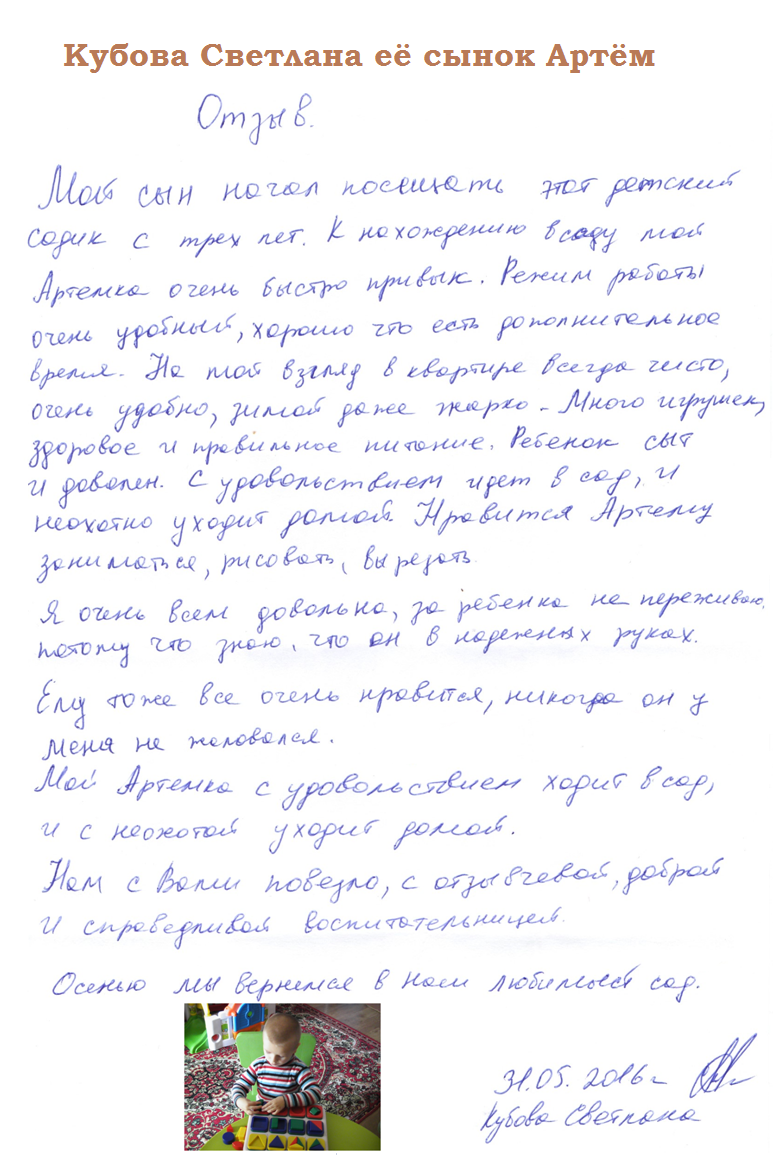 Кубова Светлана её сынок Артём
Отзыв.
Мой сын начал посещать этот детский
садик с трех лет. К нахождению в саду мой
Артемка очень быстро привык. Режим работы
очень удобный, хорошо что есть дополнительное
время. На мой взгляд в квартире всегда чисто,
очень удобно, зимой даже жарко. Много игрушек,
здоровое и правильное питание. Ребенок сыт
и доволен. С удовольствием идет в сад, и
неохотно уходит домой. Нравится Артему
заниматься, рисовать, вырезать.
Я очень всем довольна, за ребенка не переживаю,
потому что знаю, что он в надежных руках.
Ему тоже все очень нравится, никогда он у
меня не жаловался.
Мой Артемка с удовольствием ходит в сад,
и с неохотой уходит домой.
Нам с Вами повезло, с отзывчевой, доброй
и справедливой воспитательницей.
Осенью мы вернемся в наш любимый сад.
31.05.2016г
Кубова Светлана